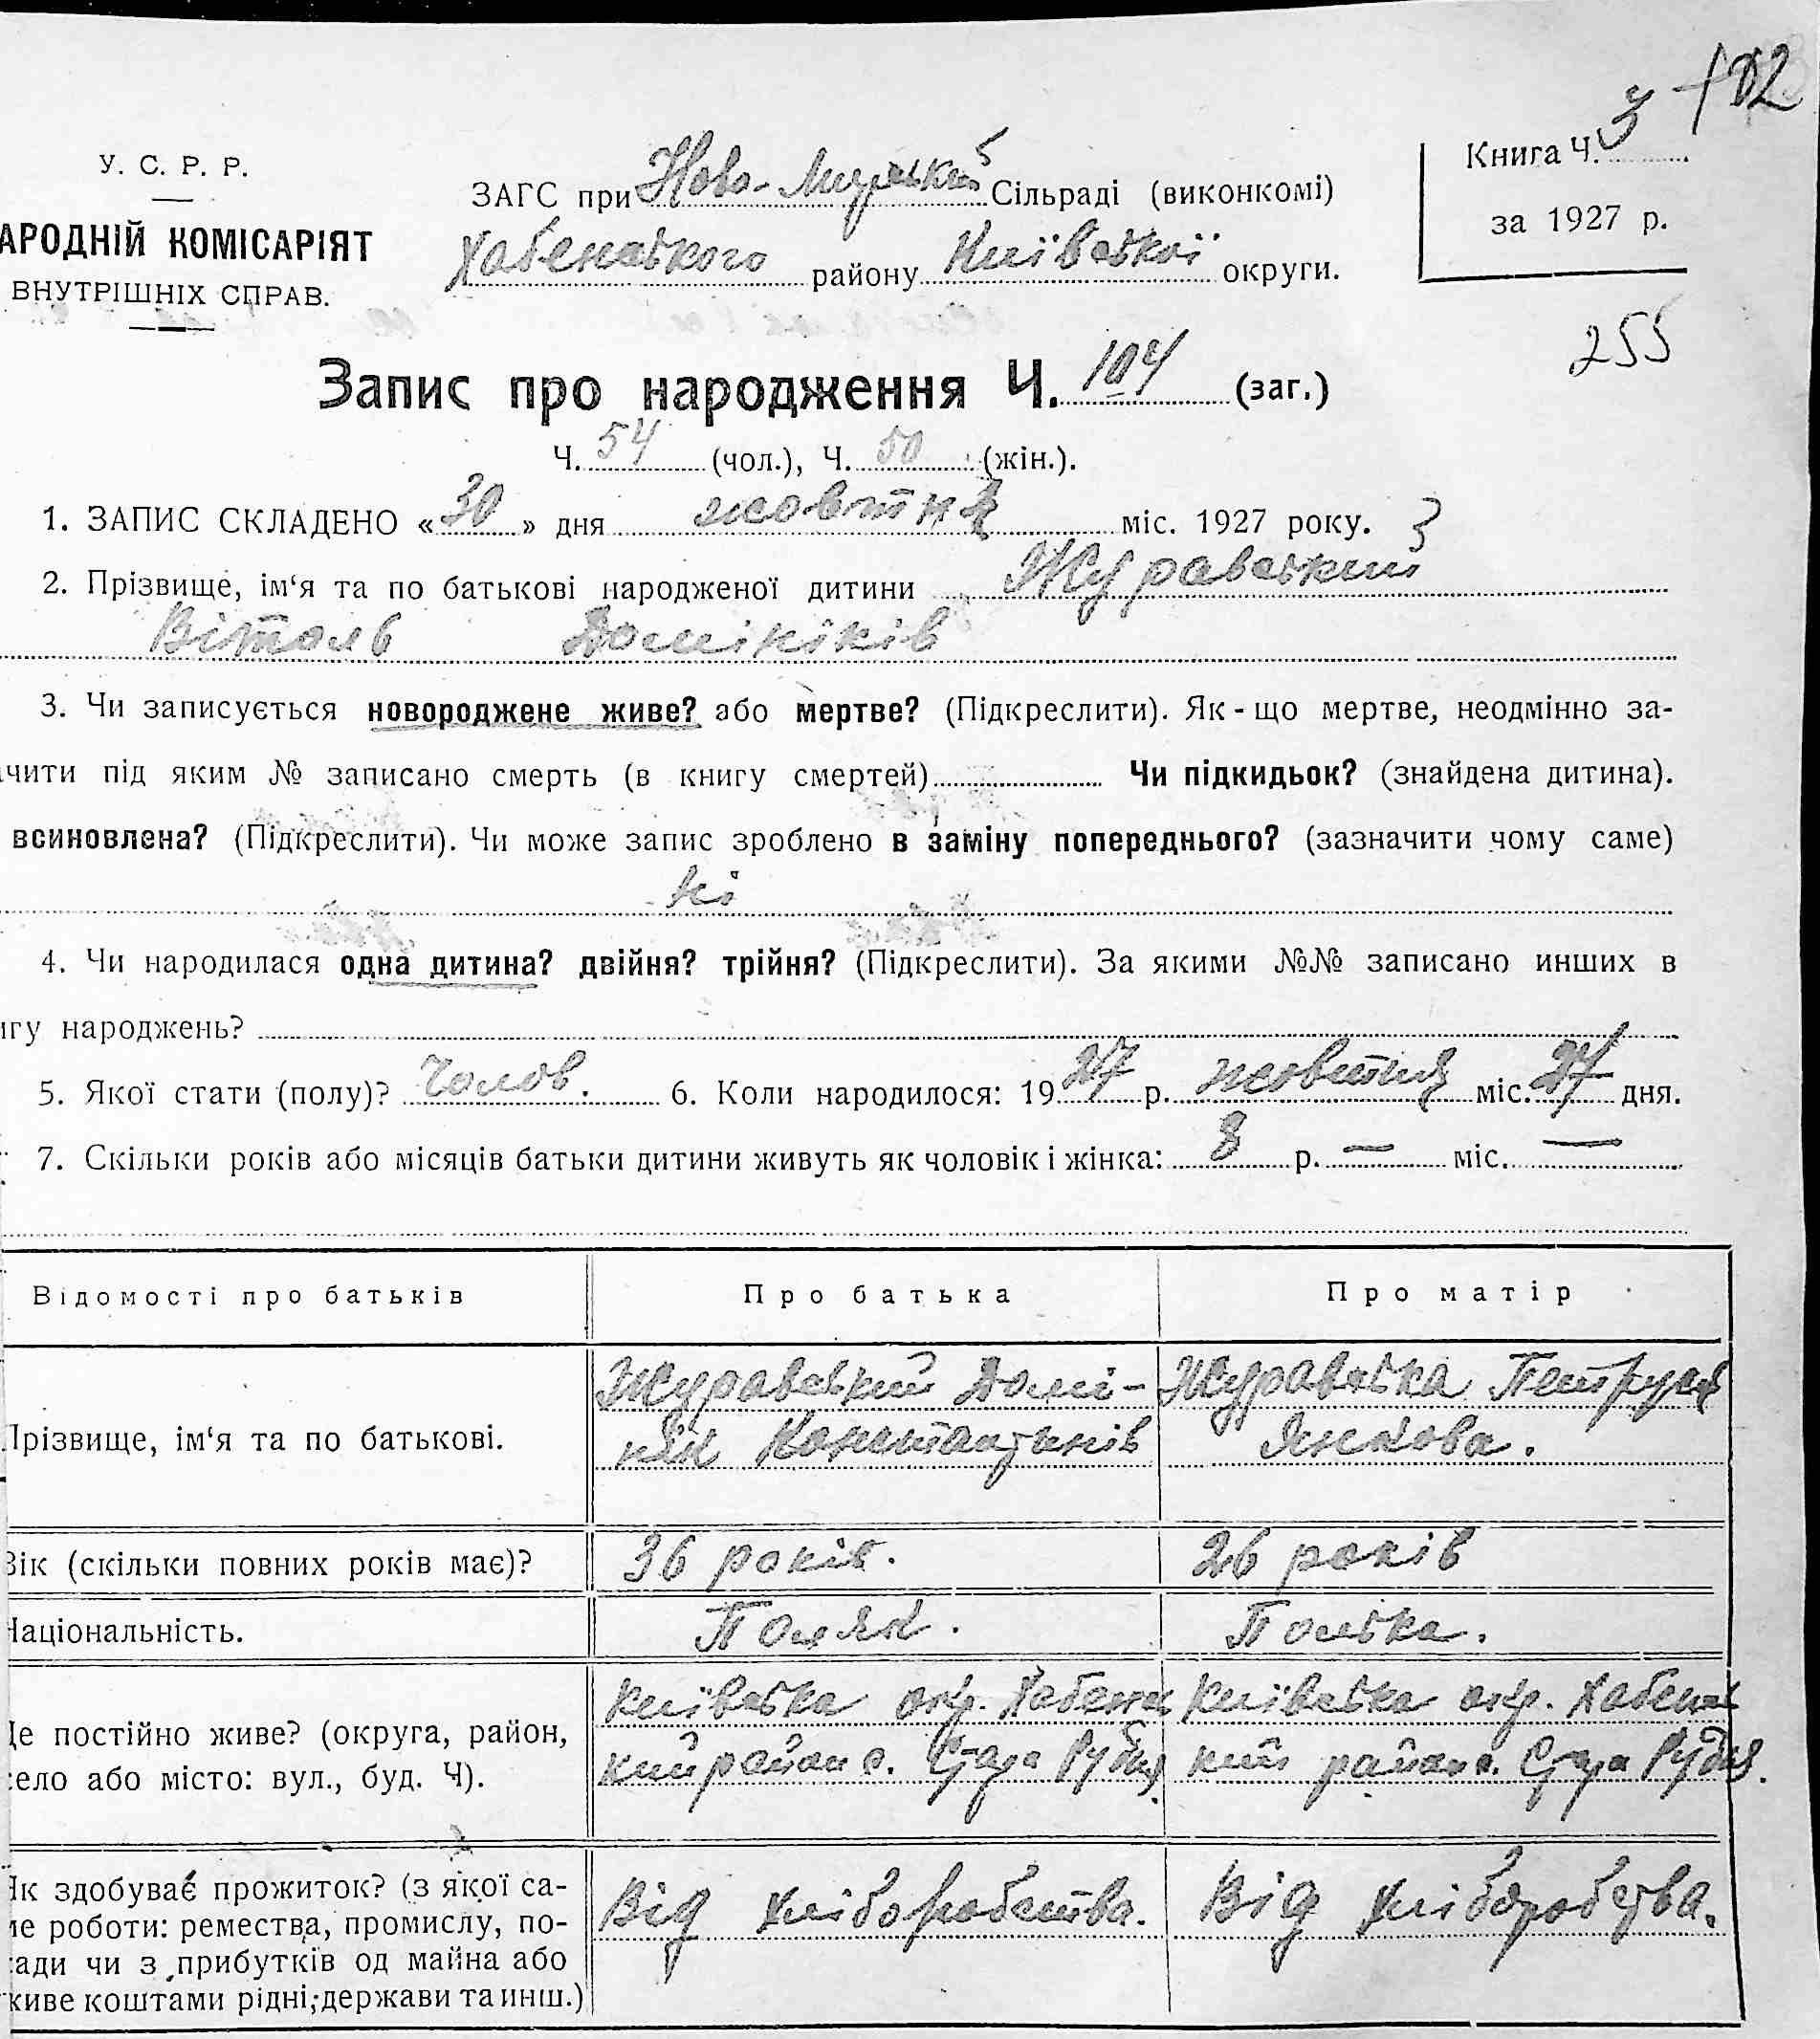 102
У. С. Р. Р.
АРОДНІЙ КОМІСАРІЯТ
ВНУТРІШНІХ СПРАВ.
ЗАГС при Ново-Мирський Сільраді (виконкомі)
Хабенського району Київської округи.
Книга Ч. 3
за 1927 р.
255
Запис про народження Ч. 104 (заг.)
Ч. 54 (чол.), Ч. 50 (жін.).
1. ЗАПИС СКЛАДЕНО «30» дня жовтня міс. 1927 року. 3
2. Прізвище, ім‘я та по батькові народженої дитини Журавський
Віталь Домініків
3. Чи записується новороджене живе? або мертве? (Підкреслити). Як-що мертве, неодмінно за-
чити під яким № записано смерть (в книгу смертей) Чи підкидьок? (знайдена дитина).
всиновлена? (Підкреслити). Чи може запис зроблено в заміну попереднього? (зазначити чому саме)
ні
4. Чи народилася одна дитина? двійня? трійня? (Підкреслити). За якими №№ записано инших в
игу народжень?
5. Якої стати (полу)? Чолов. 6. Коли народилося: 1927 р. жовтня міс. 27 дня.
7. Скільки років або місяців батьки дитини живуть як чоловік і жінка: 8 р. — міс. —
Відомості про батьків Про батька Про матір
Прізвище, ім‘я та по батькові.
Журавський Домі-
нік Константинів
Журавська Петруся
Янкова.
Вік (скільки повних років має)? 36 років. 26 років
Національність. Поляк. Полька.
Де постійно живе? (округа, район,
село або місто: вул., буд. Ч).
Київська окр. Хабенс
кий район с. Стара Рудня.
Київська окр. Хабенс
кий район с. Стара Рудня.
Як здобуває прожиток? (з якої са-
ме роботи: ремества, промислу, по-
сади чи з прибутків од майна або
живе коштами рідні, держави та инш.)
Від хліборобства.
Від хліборобства.